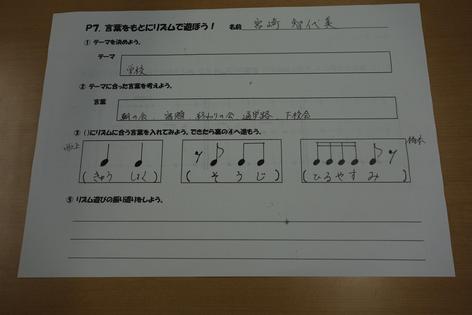 P7. 言葉をもとにリズムで遊ぼう！ 名前 宮崎 智代美
① テーマを決めよう。
テーマ
学校
② テーマに合った言葉を考えよう。
言葉
朝の会 終わりの会 通学路 下校会
③ ( )にリズムに合う言葉を入れてみよう。できたら裏の④へ進もう。
(きゅう しょく) (そうじ) (ひるやすみ)
⑤ リズム遊びの振り返りをしよう。